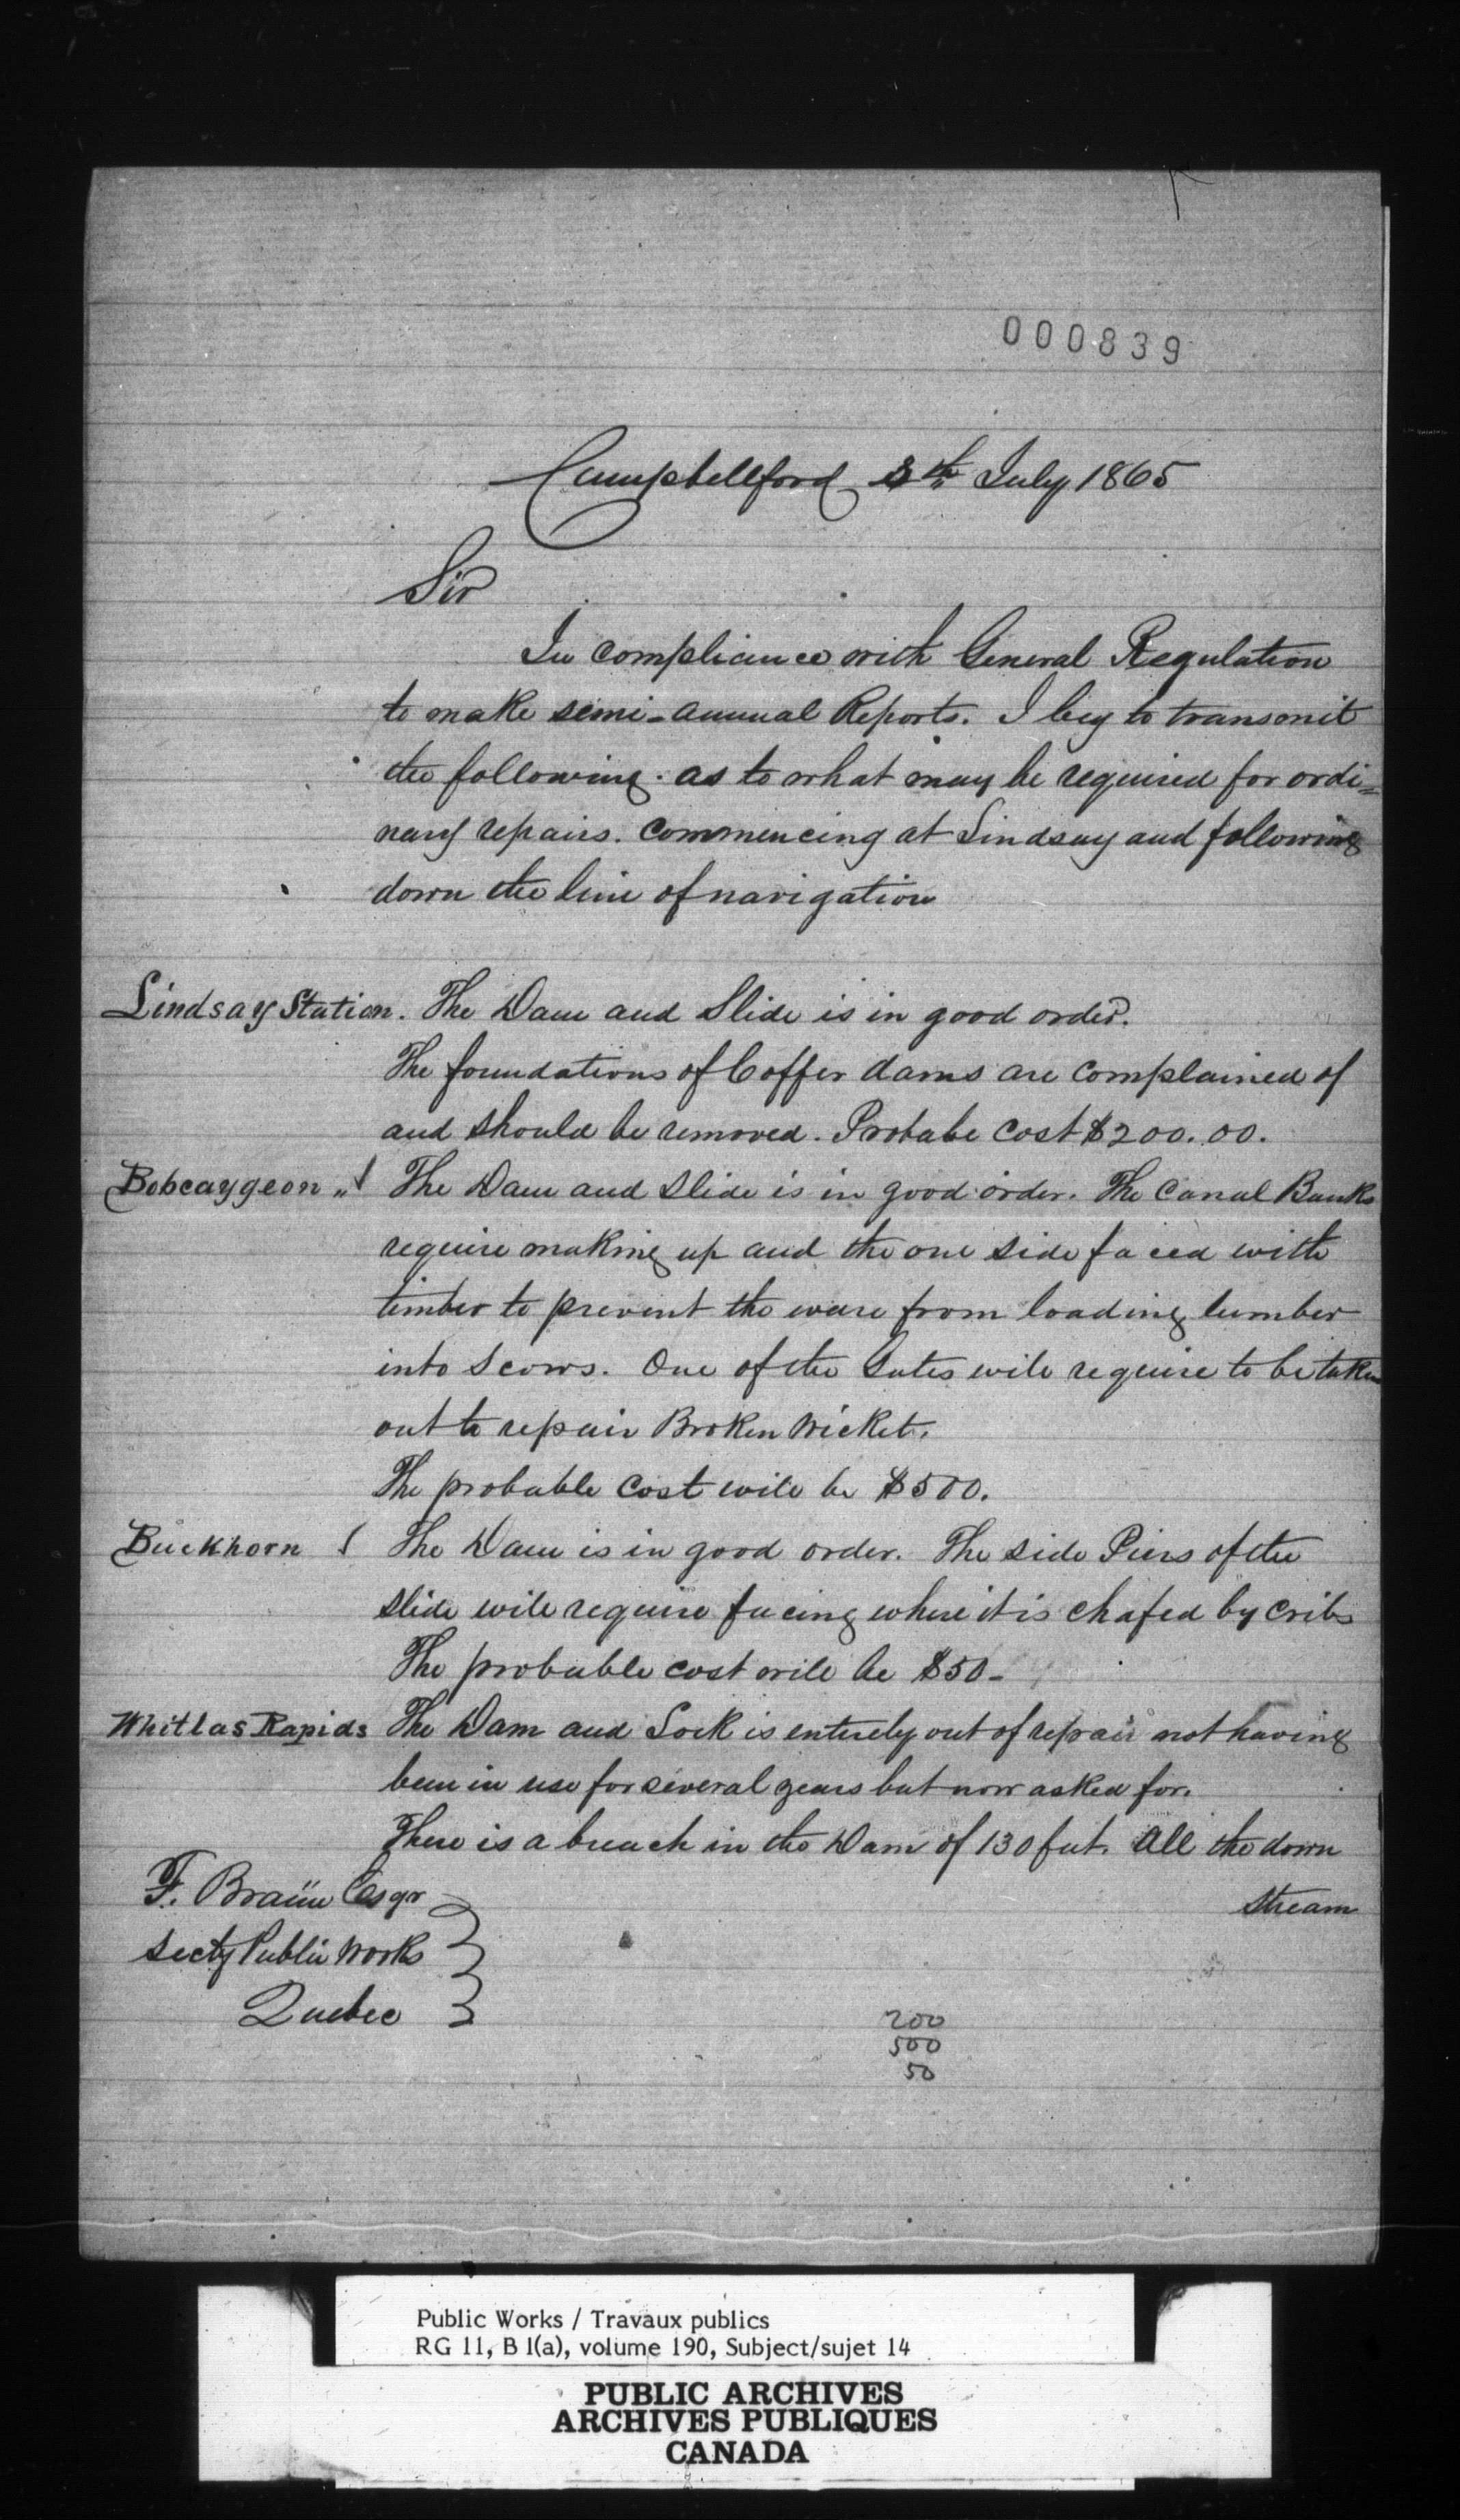 000839
Campbellford 8th July 1865
Sir
In compliance with General Regulation
to make semi-annual Reports. I beg to transmit
the following. as to what may be required for ordi=
nary repairs. Commencing at Lindsay and following
down the line of navigation
Lindsay Station. The Dam and Slide is in good order.
The foundations of Coffer dams are complained of
and should be removed. Probabe Cost $200.00.
Bobcaygeon „ The Dam and Slide is in good order. The Canal Banks
require making up and the one side faced with
timber to prevent the ware from loading lumber
into Scows. One of the Gates will require to be taken
out to repair Broken Wicket.
The probable Cost will be $500.
Buckhorn The Dam is in good order. The side Piers of the
slide will require facing where it is chafed by Cribs
The probable cost will be $50-
Whitlas Rapids The Dam and Lock is entirely out of repair not having
been in use for several years but now asked for.
There is a breach in the Dam of 130 feet. All the down
stream
F. Braün Esqr
Secty Public Works
Quebec
200
500
50
Public Works / Travaux publics
RG 11, B 1(a), volume 190, Subject/sujet 14
PUBLIC ARCHIVES
ARCHIVES PUBLIQUES
CANADA